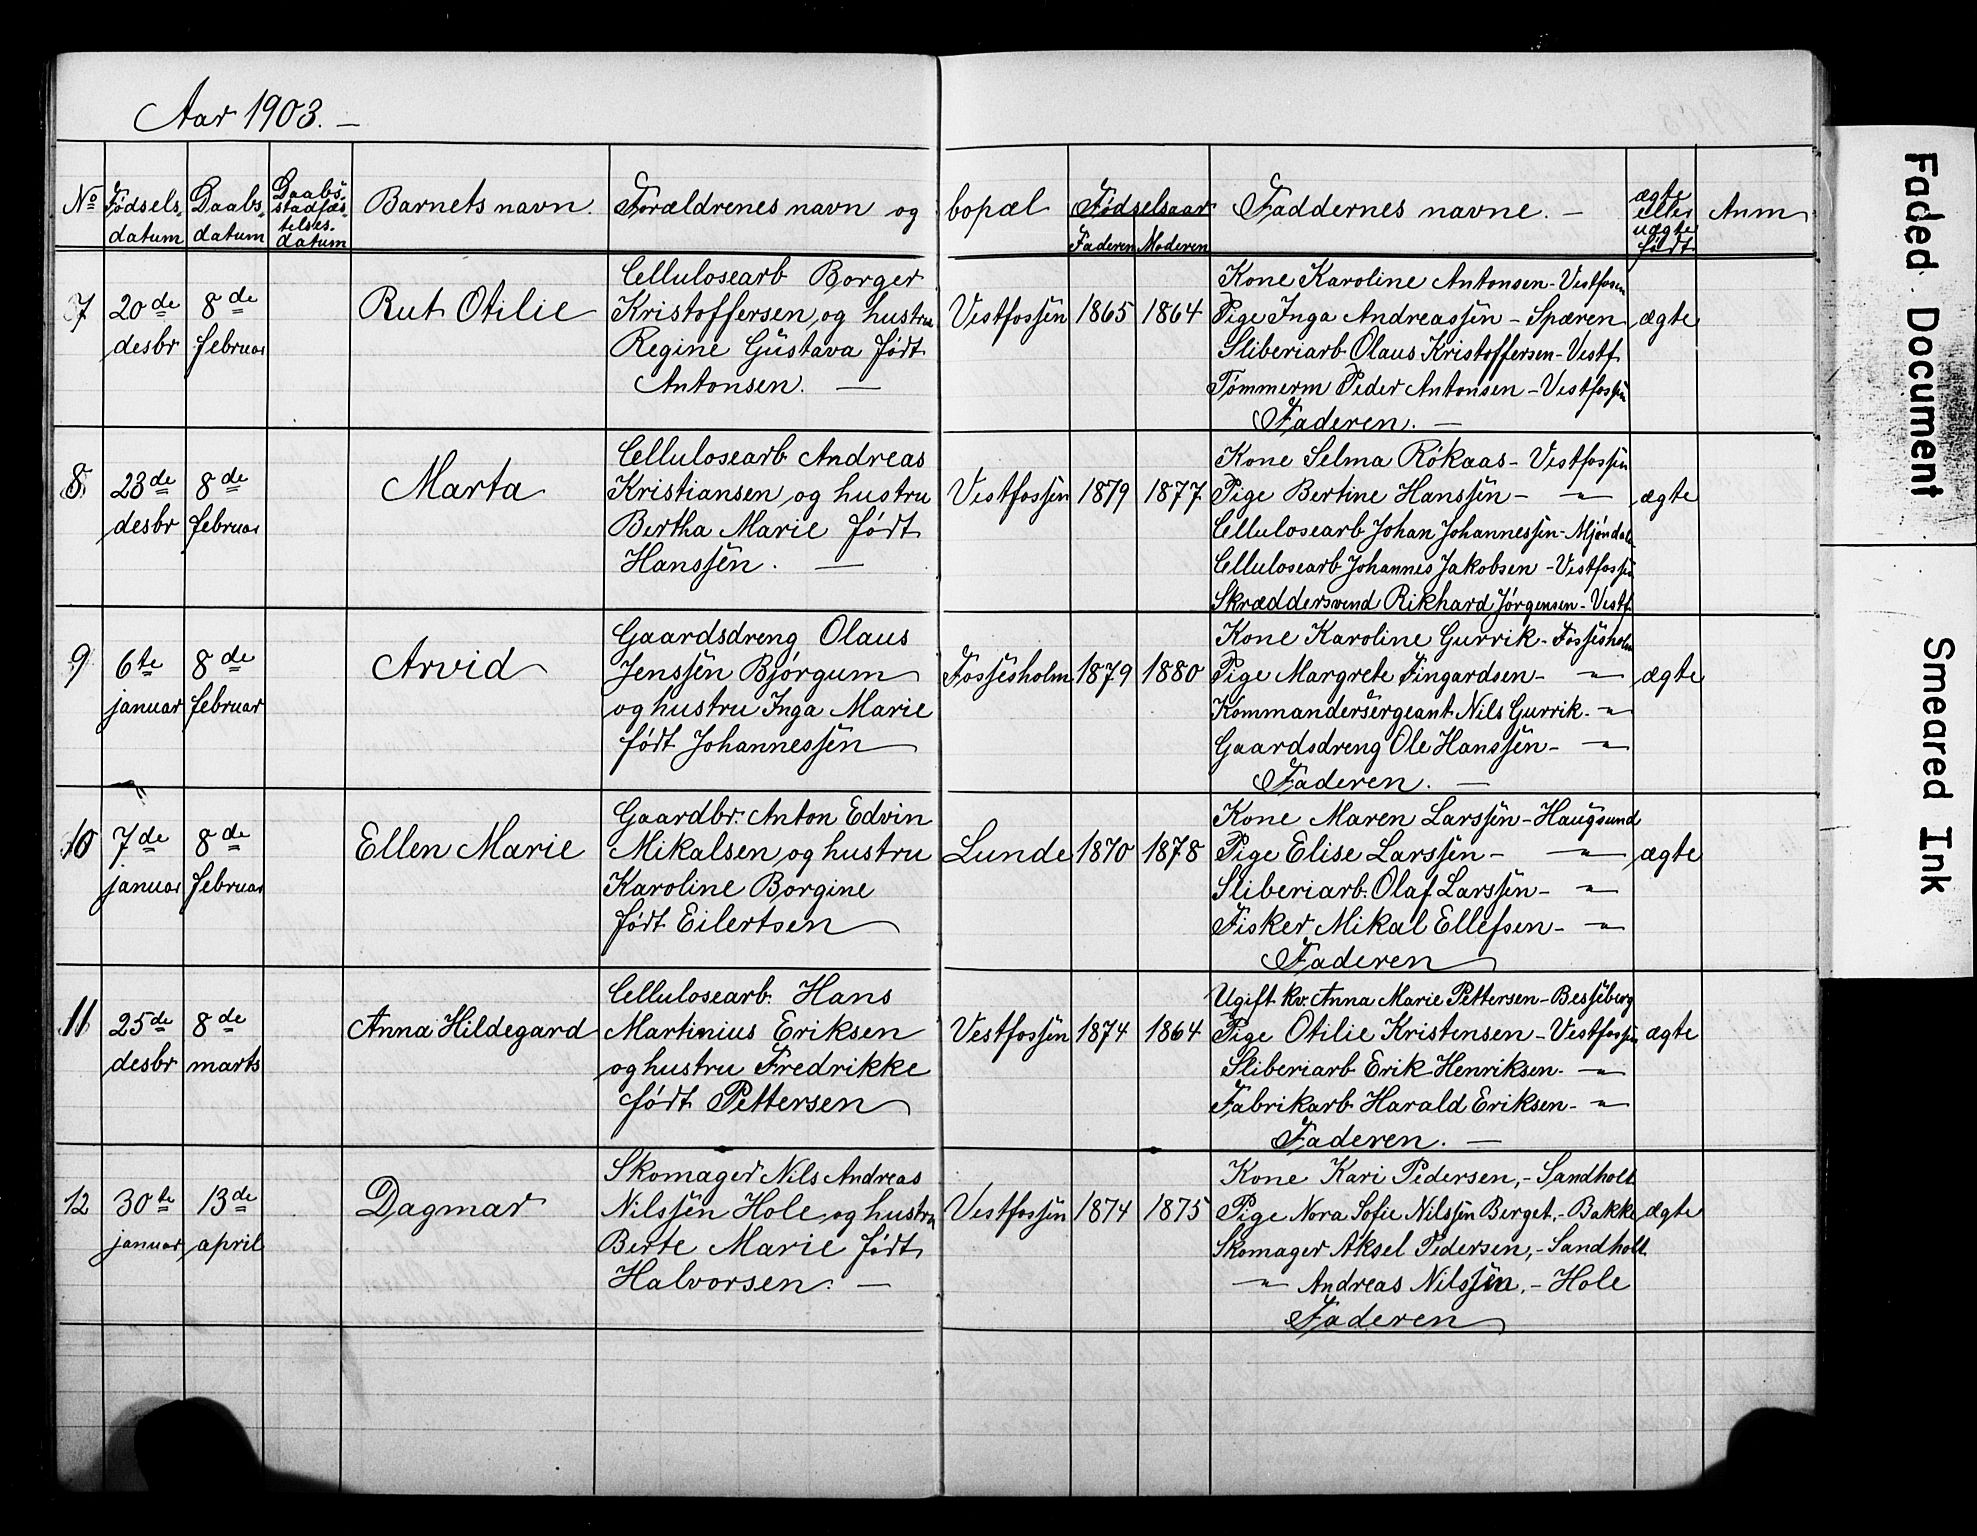 Aar 1903. —
No Fødsels. datum Daabs. datum Daabs. stadfæs. telses. datum Barnets navn. Forældrenes navn og bopæl Fødselsaar Faderen Moderen Faddernes navne. — ægte eller uægte født Anm
7 20de desbr 8de februar Rut Otilie
Cellulosearb Borger
Kristoffersen, og hustru
Regine Gustava født
Antonsen. —
Vestfossen 1865 1864
Kone Karoline Antonsen - Vestfossen
Pige Inga Andreassen - Spæren
Sliberiarb Olaus Kristoffersen - Vestf
Tømmerm Peder Antonsen - Vestfossen
Faderen. —
ægte
8 23de desbr 8de februar Marta
Cellulosearb Andreas
Kristiansen, og hustru
Bertha Marie født
Hanssen. —
Vestfossen 1879 1877
Kone Selma Røkaas - Vestfossen
Pige Bertine Hanssen - —"—
Cellulosearb Johan Johannessen - Mjøndalen
Cellulosearb Johannes Jakobsen - Vestfossen
Skræddersvend Rikhard Jørgensen - Vestf.
ægte
9 6te januar 8de februar Arvid
Gaardsdreng Olaus
Jenssen Bjørgum
og hustru Inga Marie
født Johannessen
Fossesholm 1879 1880
Kone Karoline Gurrik - Fossesholm
Pige Margrete Fingardsen - —"—
Kommandersergeant Nils Gurrik. —"—
Gaardsdreng Ole Hanssen - —"—
Faderen. —
ægte
10 7de januar 8de februar Ellen Marie
Gaardbr. Anton Edvin
Mikalsen og hustru
Karoline Borgine
født Eilertsen
Lunde 1870 1878
Kone Maren Larssen - Haugsund
Pige Elise Larssen - —"—
Sliberiarb. Olaf Larssen - —"—
Fisker Mikal Ellefsen - —"—
Faderen
ægte
11 25de desbr 8de marts Anna Hildegard
Cellulosearb. Hans
Martinius Eriksen
og hustru Fredrikke
født Pettersen
Vestfossen 1874 1864
Ugift kv. Anna Marie Pettersen - Besseberg
Pige Otilie Kristensen - Vestfossen
Sliberiarb Erik Henriksen. —"—
Fabrikarb Harald Eriksen - —"—
Faderen. —
ægte
12 30te januar 13de april Dagmar
Skomager Nils Andreas
Nilssen Hole, og hustru
Berte Marie født
Halvorsen. —
Vestfossen 1874 1875
Kone Kari Pedersen, - Sandholt
Pige Nora Sofie Nilssen Berget, - Bakke
Skomager Aksel Pedersen, - Sandholt
—"— Andreas Nilssen, - Hole
Faderen
ægte
Faded Document
Smeared Ink